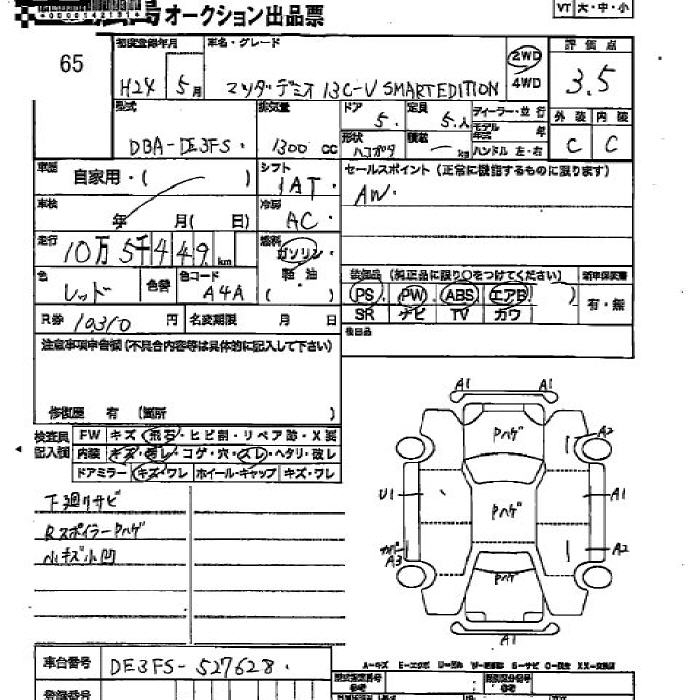 オークション出品票
VT 大・中・小
65
初度登録年月
H24 5月
車名・グレード
マツダ デミオ 13C-V SMART EDITION
2WD
4WD
評価点
3.5
型式
DBA-DE3FS
排気量
1300 cc
ドア
5
定員
5人
ディーラー・並行
モデル年式 年
ハンドル 左・右
形状
積載
kg
外装 内装
C C
車歴
自家用・( )
シフト
1AT
セールスポイント(正常に機能するものに限ります)
AW
車検
年 月( 日)
冷房
AC
走行
10万5千449 km
燃料
ガソリン
軽油
( )
色
レッド
色替
色コード
A4A
装備品(純正品に限り○をつけてください)
PS PW ABS エアB )
SR ナビ TV カワ
新車保証書
有・無
R券 10310円
名変期限 月 日
後日品
注意事項申告欄(不具合内容等は具体的に記入して下さい)
修復歴 有 (箇所 )
検査員記入欄
FW キズ・飛石・ヒビ割・リペア跡・X要
内装 キズ・汚レ・コゲ・穴・スレ・ヘタリ・破レ
ドアミラー キズ・ワレ ホイール・キャップ キズ・ワレ
下廻りサビ
RスポイラーPハゲ
小キズ小凹
A1 A1
Pハゲ
A2
U1
Pハゲ
A1
A3
A2
Pハゲ
A1
車台番号
DE3FS-527628
登録番号
型式指定番号
類別区分番号